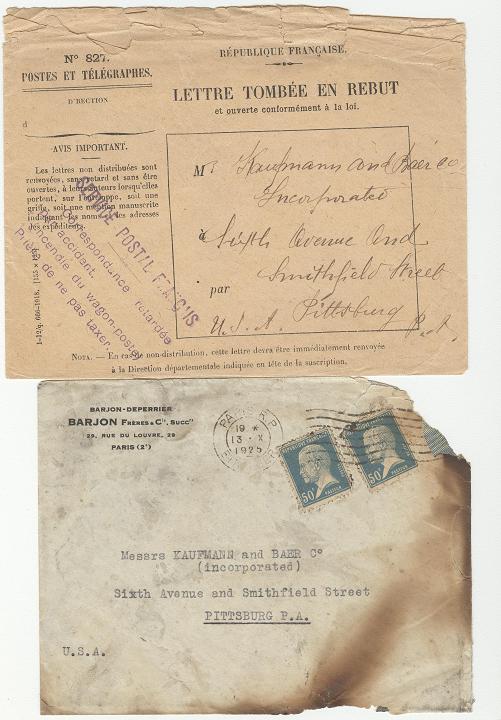 Nº 827.
POSTES ET TÉLÉGRAPHES.
D'RECTION
d
AVIS IMPORTANT.
Les lettres non distribuées sont
renvoyées, sans retard et sans être
ouvertes, à leurs auteurs lorsqu'elles
portent, sur l'enveloppe, soit une
griffe, soit une mention manuscrite
indiquant les noms et les adresses
des expéditeurs.
1-12/q. 666-1918. [155 × 12
RÉPUBLIQUE FRANÇAISE.
LETTRE TOMBÉE EN REBUT
et ouverte conformément à la loi.
M. Kaufmann and Baer Co
Incorporated
à Sixth Avenue and
Smithfield Street
par Pittsburg
U.S.A. P.A.
SERVICE POSTAL FRANÇAIS
Correspondance retardée
accident.
incendie du wagon-postal
Prière de ne pas taxer.
NOTA. — En cas de non-distribution, cette lettre devra être immédiatement renvoyée
à la Direction départementale indiquée en tête de la suscription.
BARJON-DEPERRIER
BARJON FRÈRES & Cie, Succrs
29, RUE DU LOUVRE, 29
PARIS (2e)
PARIS R.P.
19 *
13 · X
1925
RÉPUBLIQUE FRANÇAISE
50c
PASTEUR
RÉPUBLIQUE FRANÇAISE
50c
PASTEUR
Messrs KAUFMANN and BAER Co
(incorporated)
Sixth Avenue and Smithfield Street
PITTSBURG P.A.
U.S.A.